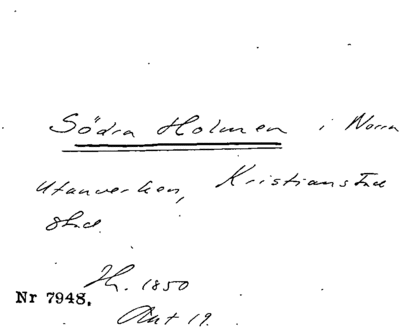 Södra Holmen i Norra
Utanverken, Kristianstad
stad.
Jh. 1850
Nr 7948.
Akt 19.